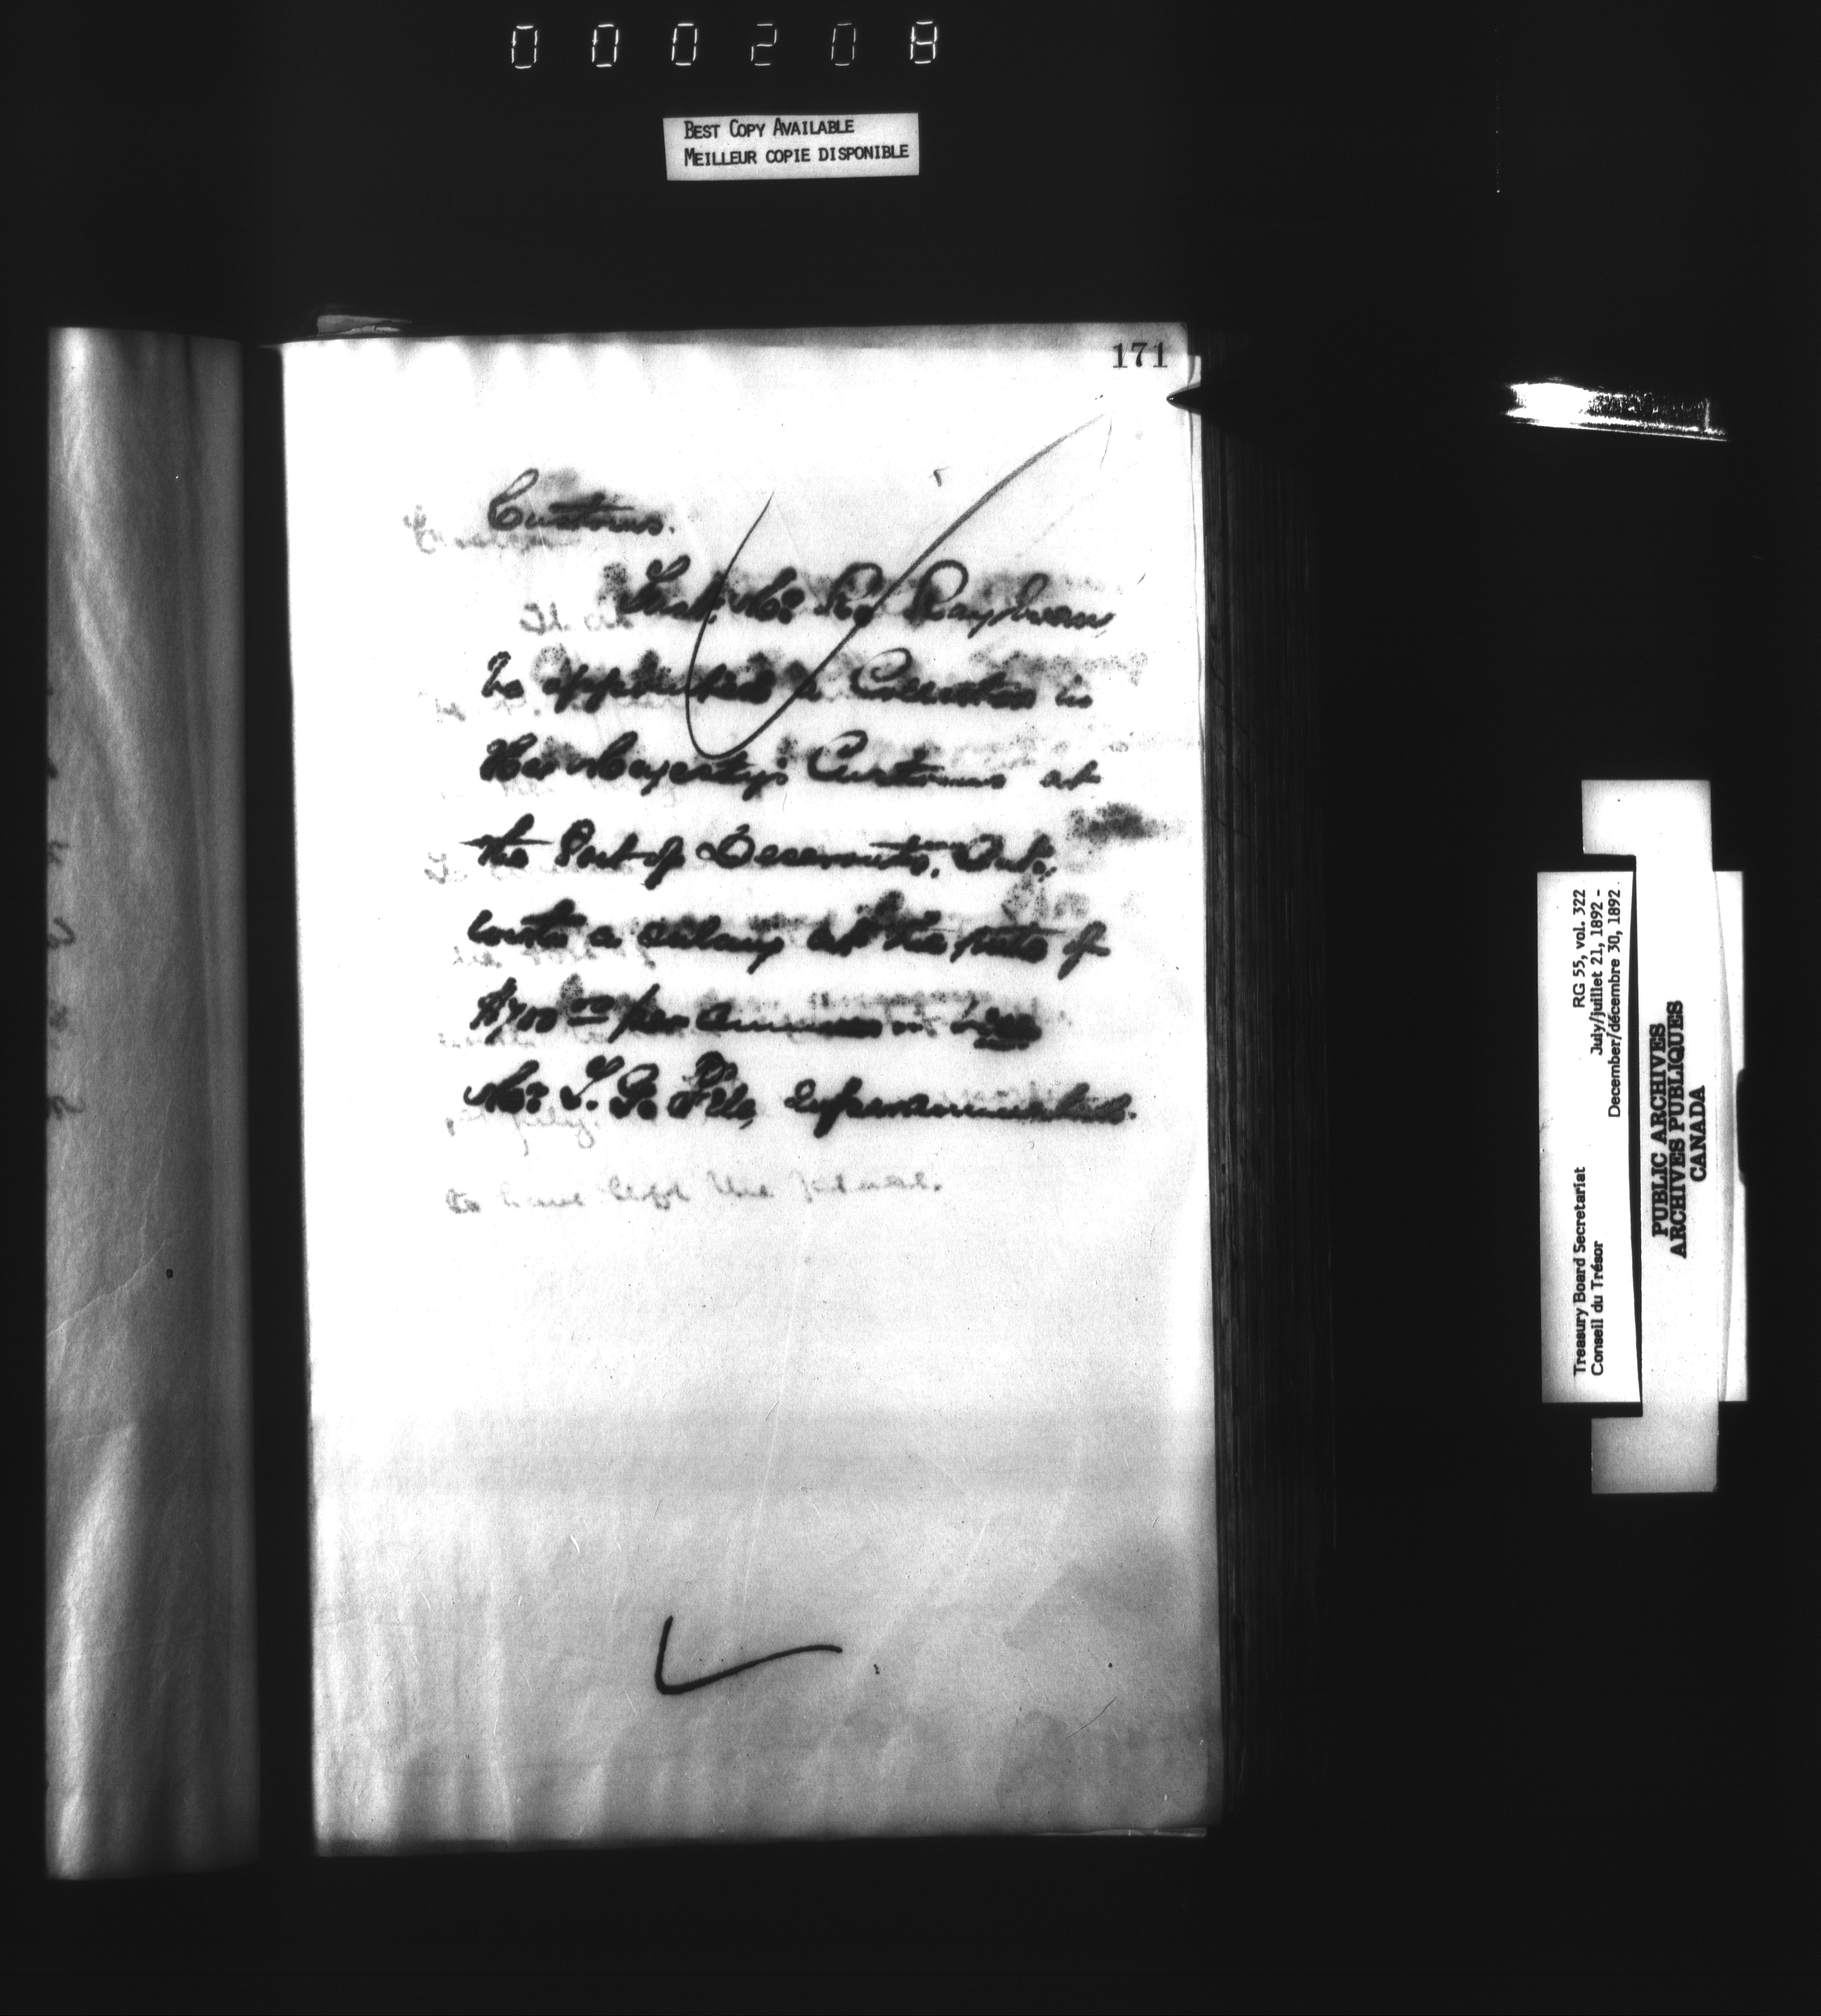 000208
BEST COPY AVAILABLE
MEILLEUR COPIE DISPONIBLE
171
Customs.
That Mr. R.
be appointed a Collector in
Her Majesty's Customs at
the Port of Deseronto, Ont.,
with a salary at the rate of
$700 00 per annum vice
Mr. superannuated.
to have left the
RG 55, vol. 322
July/juillet 21, 1892 -
December/décembre 30, 1892.
Treasury Board Secretariat
Conseil du Trésor
PUBLIC ARCHIVES
ARCHIVES PUBLIQUES
CANADA